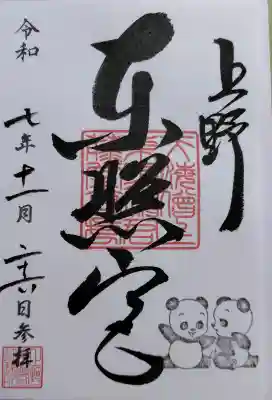 上野
東照宮
令和七年十一月二十六日参拝